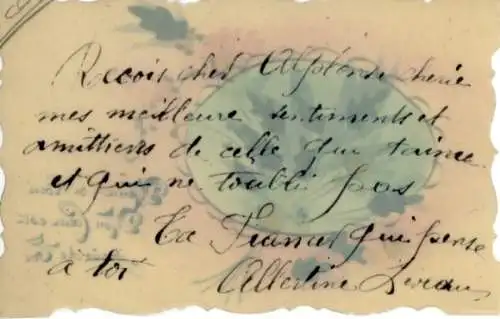 Recois cher Alphonse cherie
mes meilleure sentiments et
amittiers de celle qui taime
et qui ne toubli pas
Ta Fiancé qui pense
a toi Albertine